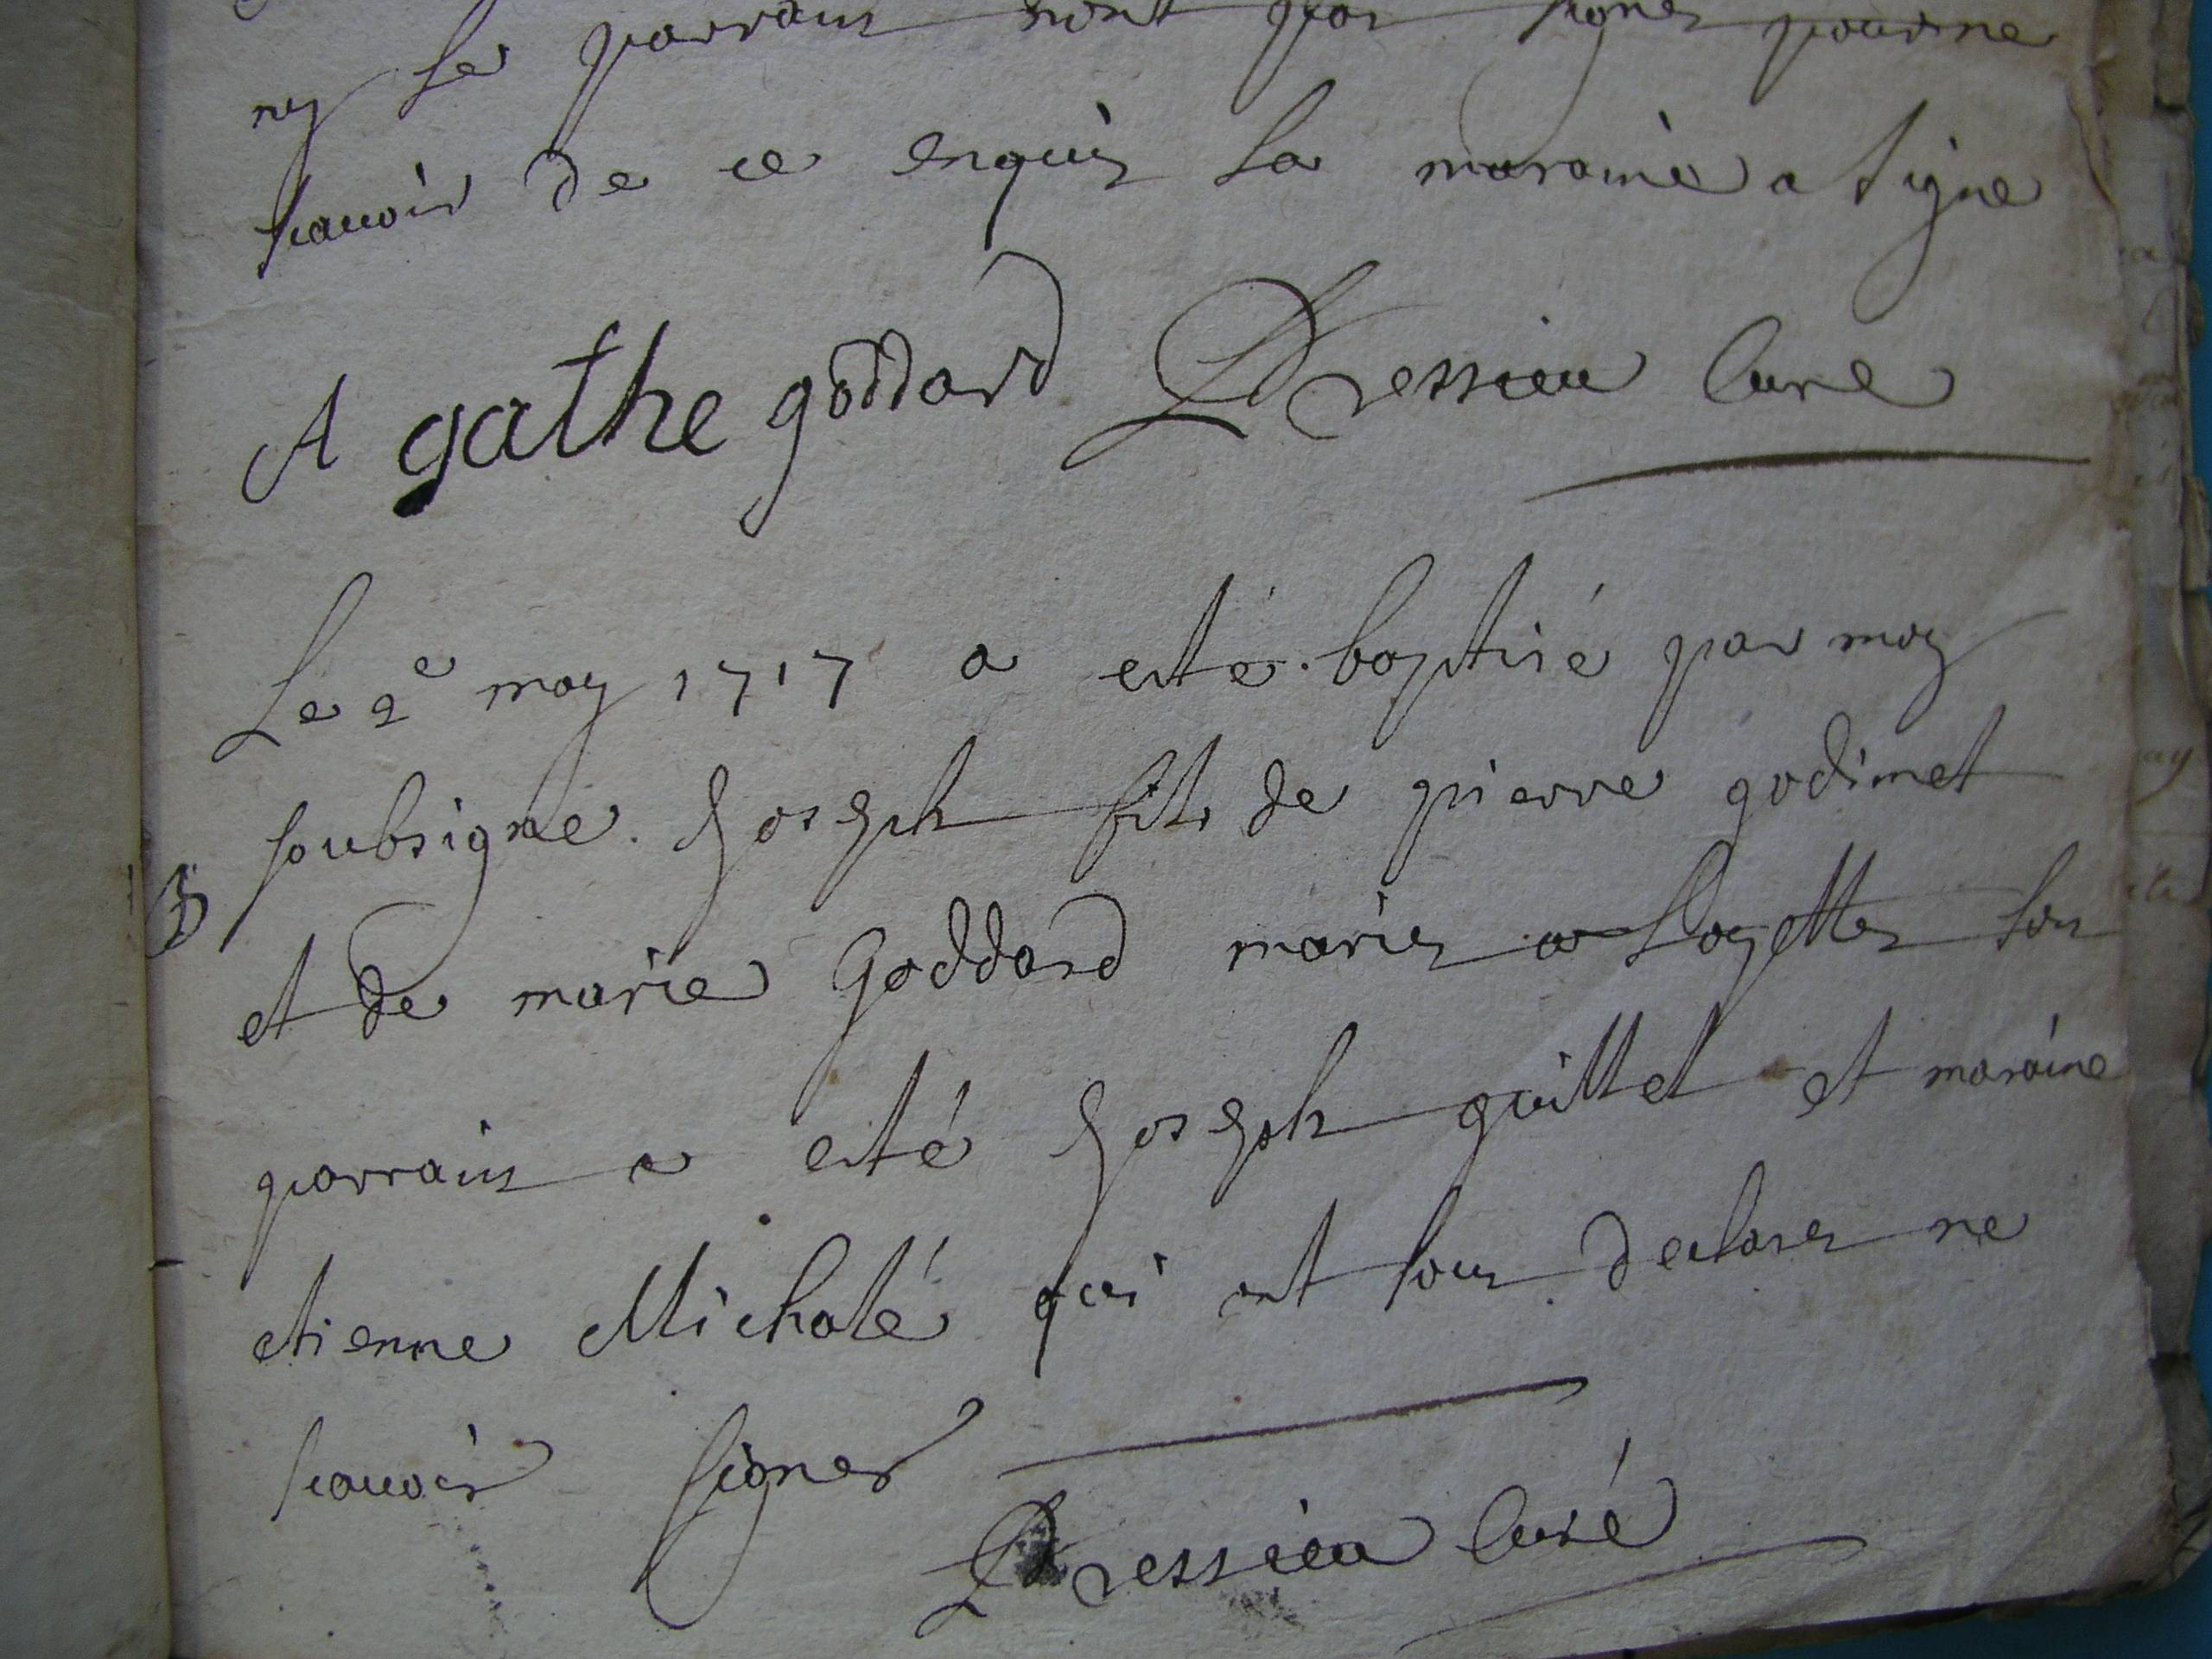 ny le parrain n'ont pas signer pour ne
scauoir de ce enquis la maraine a signe
Agathe goddard Dressieu Curé
Le 2e may 1717 a esté baptisé par moy
soubsigne. Joseph fils de pierre godimet
B
et de marie Goddard mariés a Loyettes son
parrain a esté Joseph quittet et maraine
etienne Micholé qui ont tous declarés ne
scauoir signer
Dressieu Curé